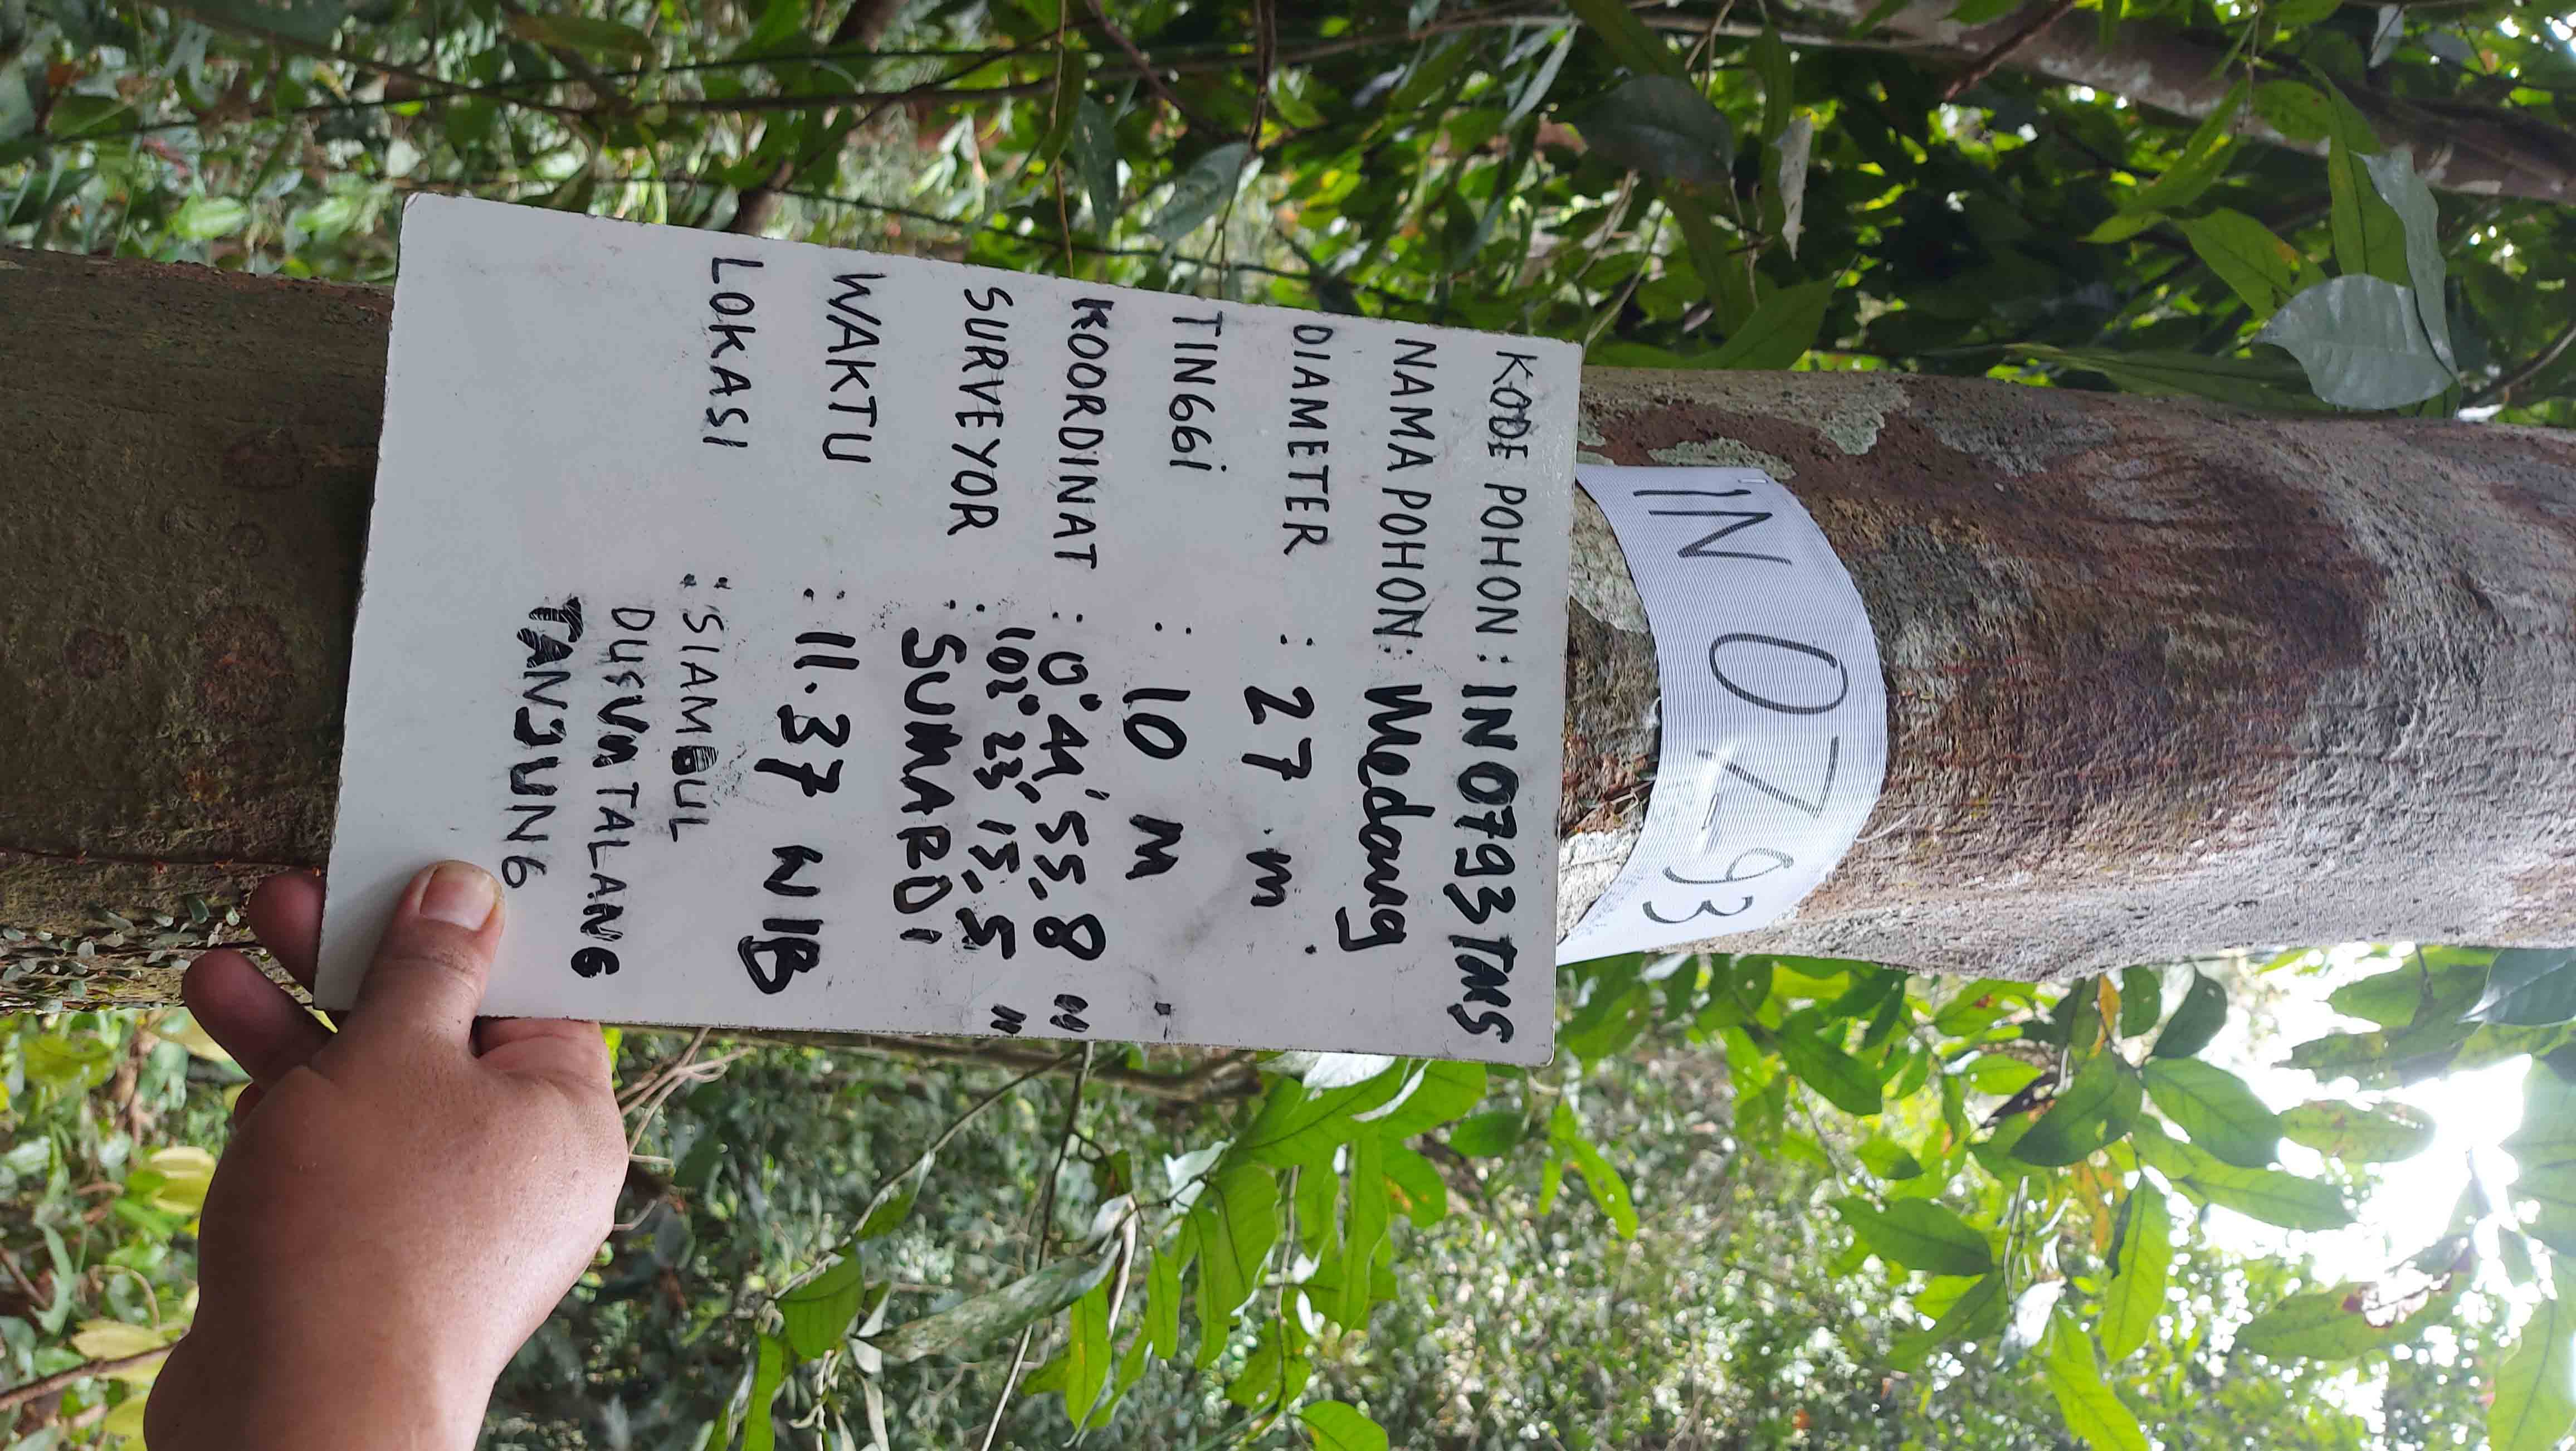 IN 0793
KODE POHON : IN 0793 TMS
NAMA POHON : Medang
DIAMETER : 27 m
TINGGI : 10 M
KOORDINAT : 0° 44' 55,8 "
102° 23' 15,5 "
SURVEYOR : SUMARDI
WAKTU : 11.37 WIB
LOKASI : SIAMBUL
DUSUN TALANG
TANJUNG